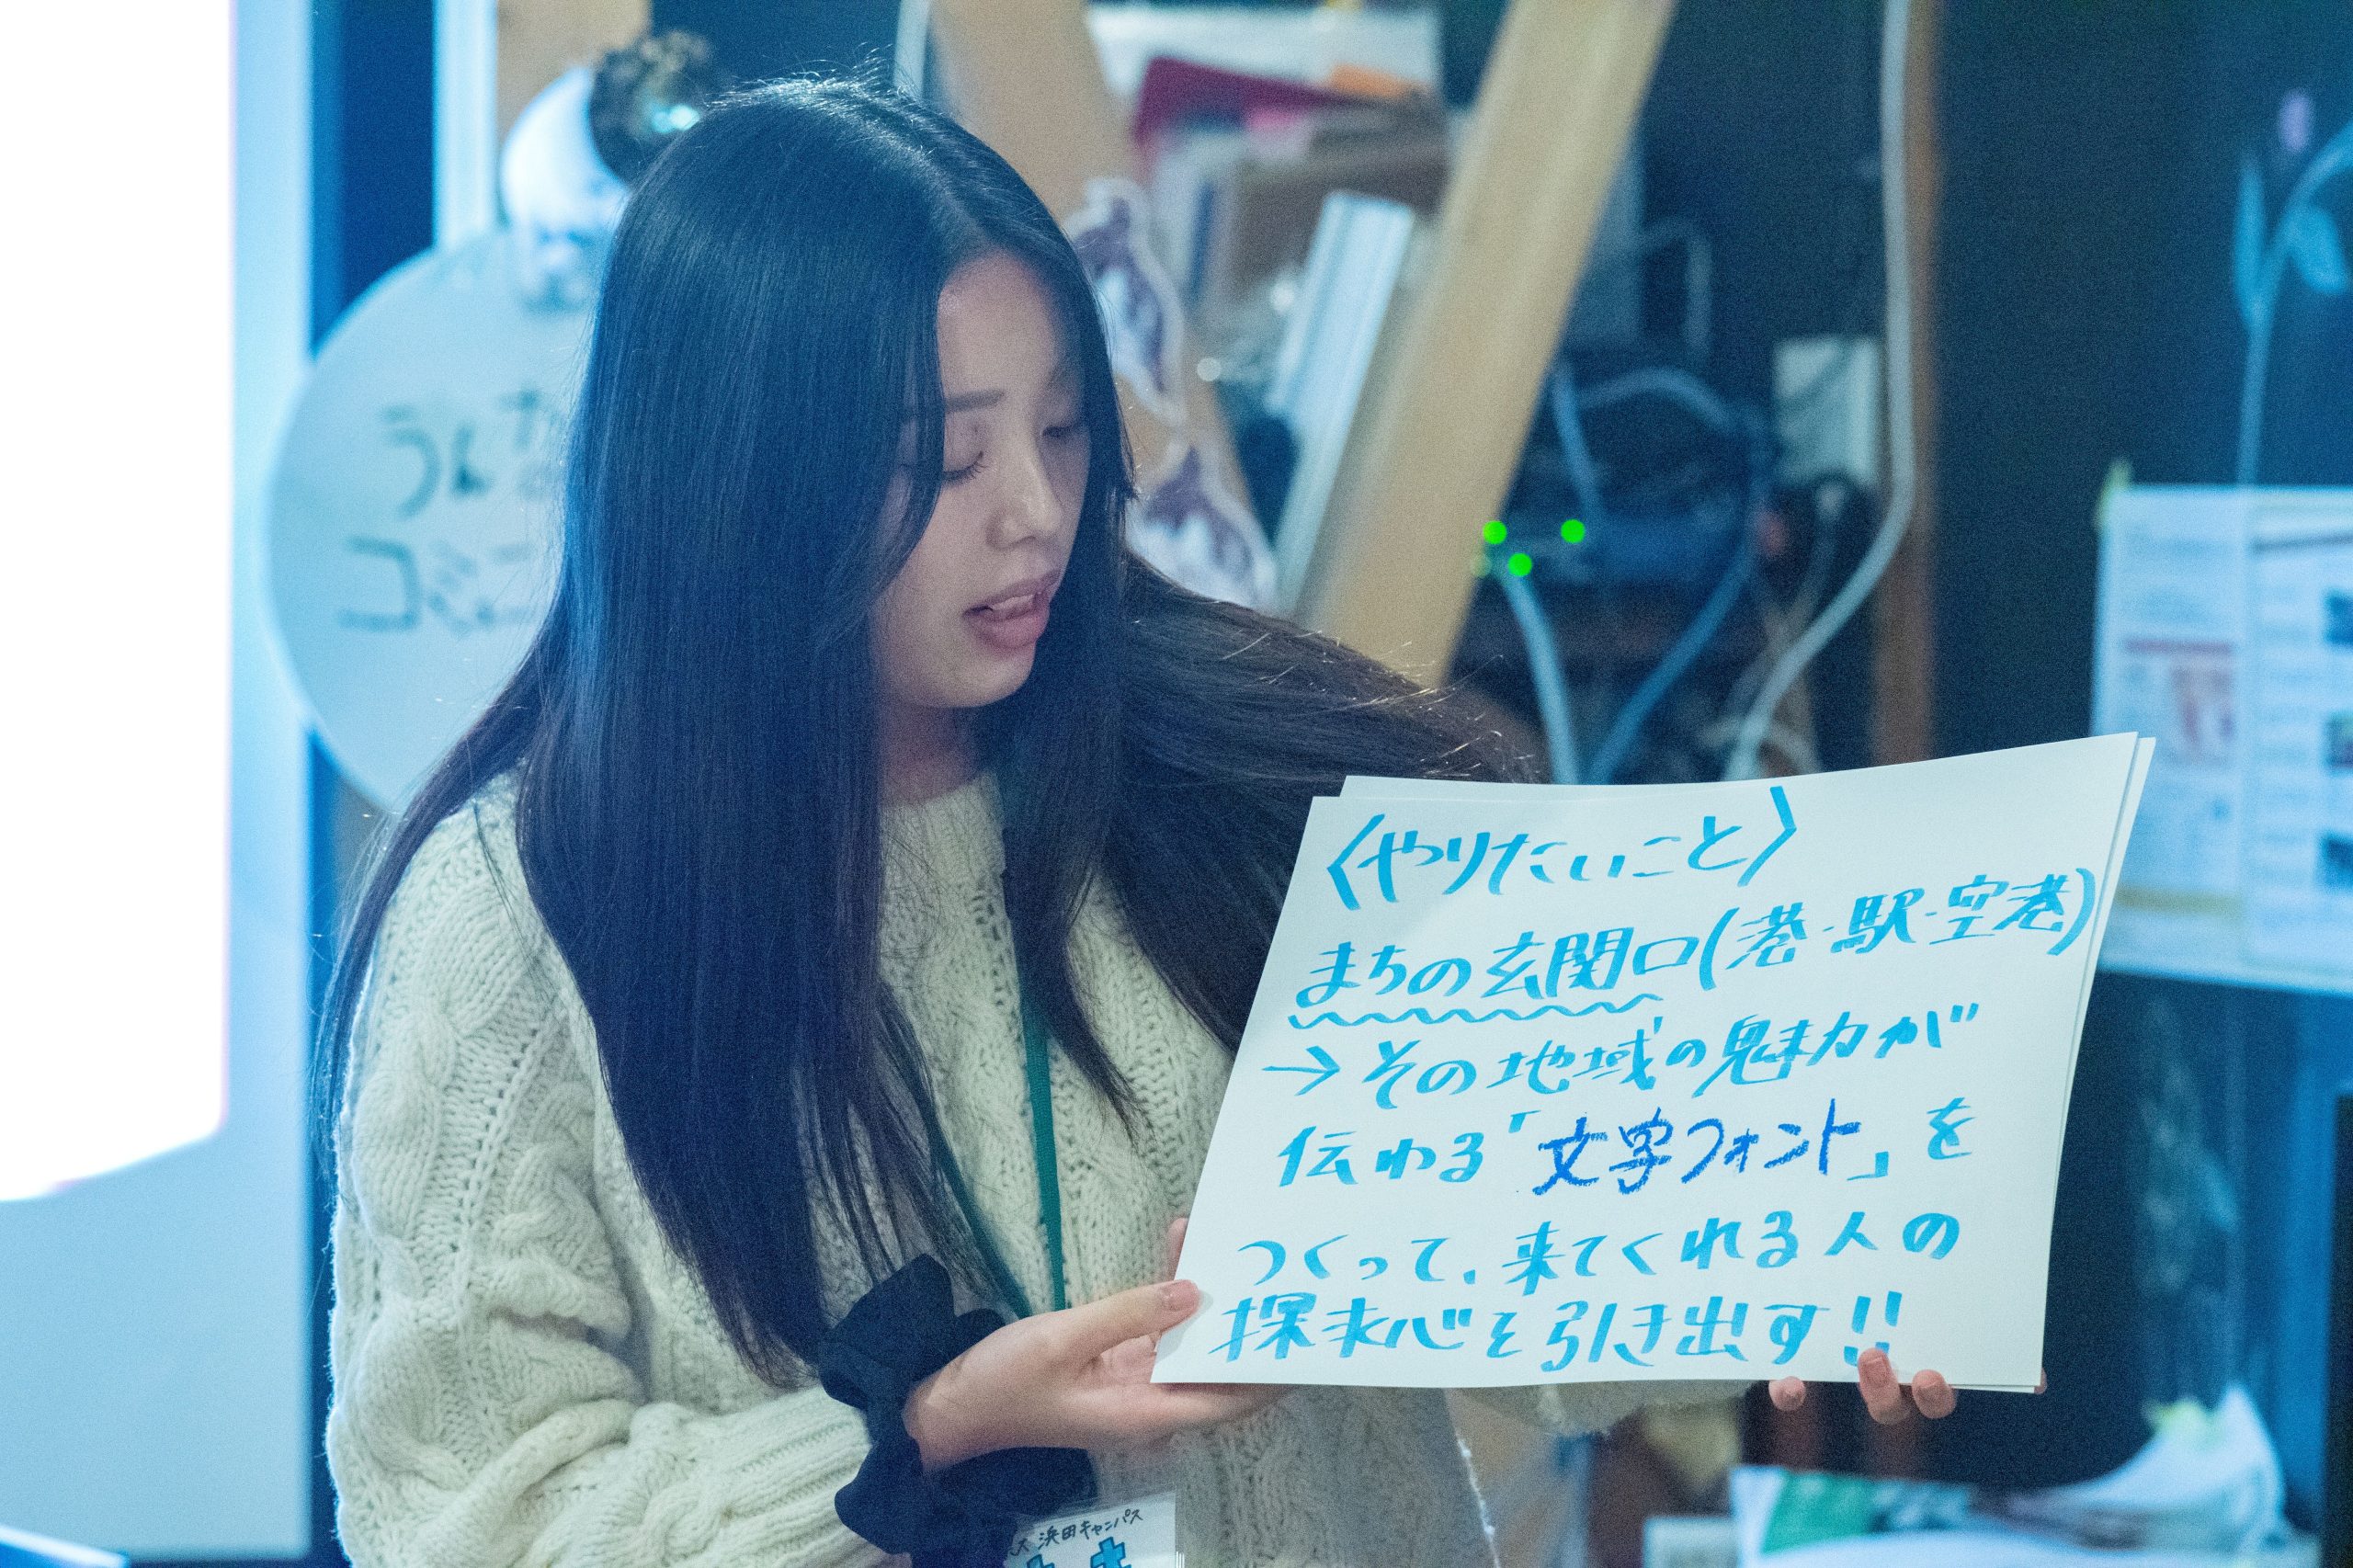 〈やりたいこと〉
まちの玄関口(港・駅・空港)
→その地域の魅力が
伝わる「文字フォント」を
つくって、来てくれる人の
探求心を引き出す!!
うんな
コミュニ
大 浜田キャンパス